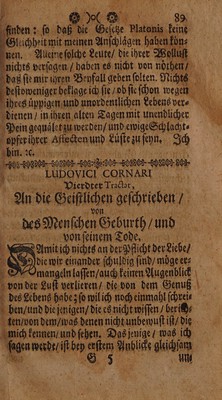 89
finden: so daß die Gesetze Platonis keine
Gleichheit mit meinen Anschlägen haben kön-
nen. Alleine solche Leute, die ihrer Wollust
nichts versagen, haben es nicht von nöthen,
daß sie mir ihren Beyfall geben solten. Nichts
destoweniger beklage ich sie, ob sie schon wegen
ihres üppigen und unordentlichen Lebens ver-
dienen, in ihren alten Tagen mit unendlicher
Pein gequälet zu werden, und ewige Schlacht-
opfer ihrer Affecten und Lüste zu seyn. Ich
bin. ec.
LUDOVICI CORNARI
Vierdter Tractat,
An die Geistlichen geschrieben,
von
des Menschen Geburth, und
von seinem Tode.
Damit ich nichts an der Pflicht der Liebe,
die wir einander schuldig sind, möge er-
mangeln lassen, auch keinen Augenblick
von der Lust verliere, die von dem Genuß
des Lebens habe; so wil ich noch einmahl schrei-
ben, und die jenigen, die es nicht wissen, berich-
ten, von dem, was denen nicht unbewust ist, die
mich kennen, und sehen. Das jenige, was ich
sagen werde, ist bey erstem Anblicke gleichsam
G 5 un-